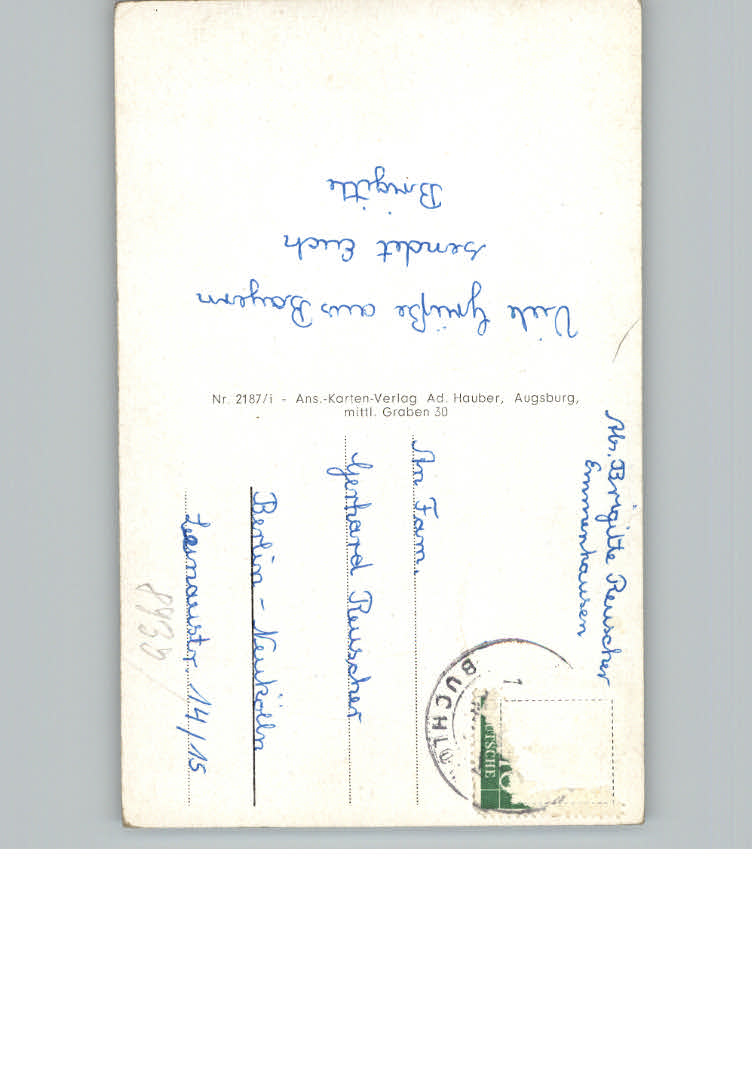 Viele Grüße aus Bayern
sendet Euch
Brigitte
Nr. 2187/i - Ans.-Karten-Verlag Ad. Hauber, Augsburg,
mittl. Graben 30
Abs. Brigitte Reuscher
Emmenhausen
An Fam.
Gerhard Reuscher
Berlin - Neukölln
14/15
BUCHLO
TSCHE